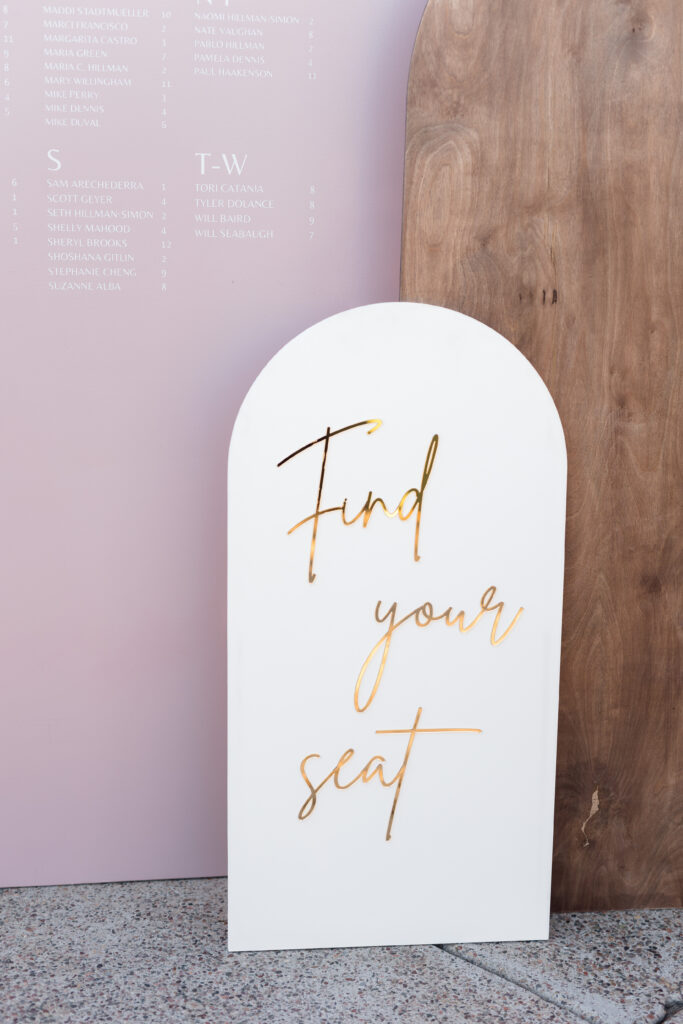 MADDI STADTMUELLER 10
MARCI FRANCISCO 2
MARGARITA CASTRO 3
MARIA GREEN 7
MARIA C. HILLMAN 2
MARY WILLINGHAM 11
MIKE PERRY 3
MIKE DENNIS 4
MIKE DUVAL 6
NAOMI HILLMAN-SIMON 2
NATE VAUGHAN 8
PABLO HILLMAN 2
PAMELA DENNIS 4
PAUL HAAKENSON 11
S
SAM ARECHEDERRA 1
SCOTT GEYER 4
SETH HILLMAN-SIMON 2
SHELLY MAHOOD 4
SHERYL BROOKS 12
SHOSHANA GITLIN 2
STEPHANIE CHENG 9
SUZANNE ALBA 8
T-W
TORI CATANIA 8
TYLER DOLANCE 8
WILL BAIRD 9
WILL SEABAUGH 7
Find
your
seat